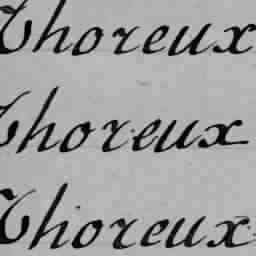 Thoreux
Thoreux
Thoreux